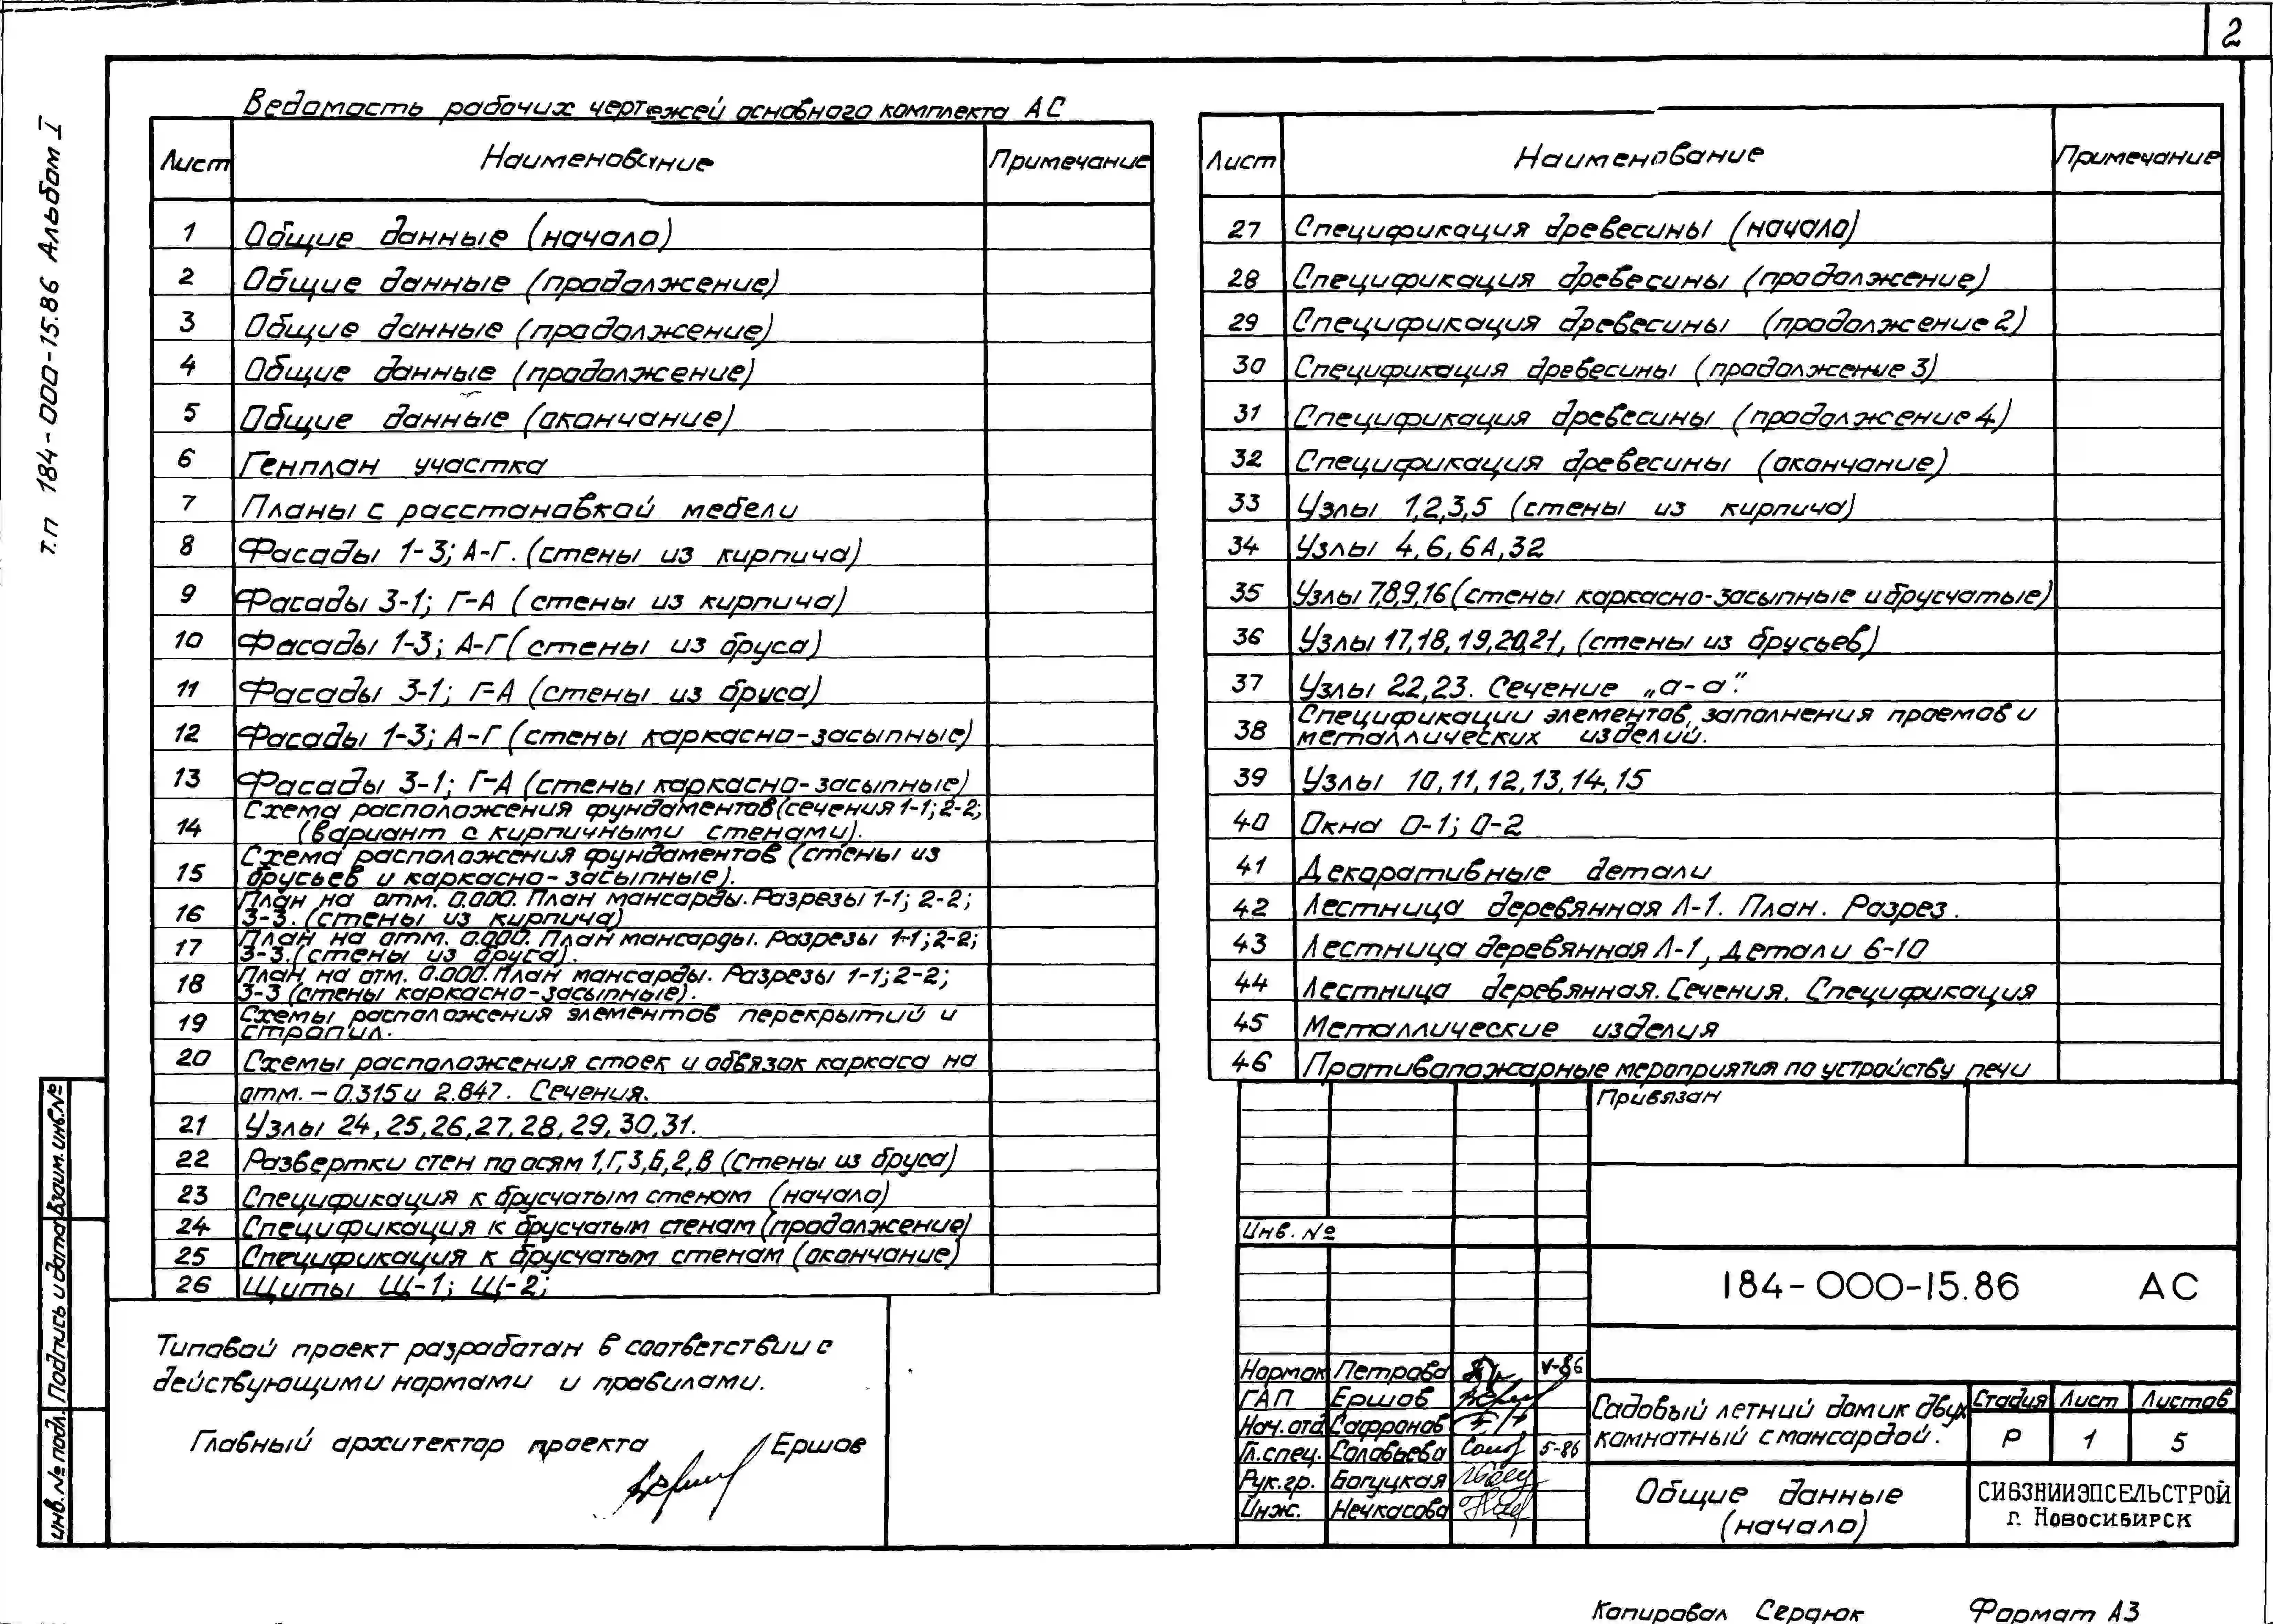 2
т.п 184-000-15.86 Альбом I
Ведомость рабочих чертежей основного комплекта АС
Лист Наименование Примечание
1 Общие данные (начало)
2 Общие данные (продолжение)
3 Общие данные (продолжение)
4 Общие данные (продолжение)
5 Общие данные (окончание)
6 Генплан участка
7 Планы с расстановкой мебели
8 Фасады 1-3; А-Г. (стены из кирпича)
9 Фасады 3-1; Г-А (стены из кирпича)
10 Фасады 1-3; А-Г (стены из бруса)
11 Фасады 3-1; Г-А (стены из бруса)
12 Фасады 1-3; А-Г (стены каркасно-засыпные)
13 Фасады 3-1; Г-А (стены каркасно-засыпные)
14 Схема расположения фундаментов (сечения 1-1; 2-2;
(вариант с кирпичными стенами).
15 Схема расположения фундаментов (стены из
брусьев и каркасно-засыпные).
16 План на отм. 0.000. План мансарды. Разрезы 1-1; 2-2;
3-3. (стены из кирпича)
17 План на отм. 0.000. План мансарды. Разрезы 1-1; 2-2;
3-3. (стены из бруса).
18 План на отм. 0.000. План мансарды. Разрезы 1-1; 2-2;
3-3 (стены каркасно-засыпные).
19 Схемы расположения элементов перекрытий и
стропил.
20 Схемы расположения стоек и обвязок каркаса на
отм. – 0.315 и 2.847. Сечения.
21 Узлы 24, 25, 26, 27, 28, 29, 30, 31.
22 Развертки стен по осям 1, Г, 3, Б, 2, В (Стены из бруса)
23 Спецификация к брусчатым стенам (начало)
24 Спецификация к брусчатым стенам (продолжение)
25 Спецификация к брусчатым стенам (окончание)
26 Щиты Щ-1; Щ-2;
Лист Наименование Примечание
27 Спецификация древесины (начало)
28 Спецификация древесины (продолжение)
29 Спецификация древесины (продолжение 2)
30 Спецификация древесины (продолжение 3)
31 Спецификация древесины (продолжение 4)
32 Спецификация древесины (окончание)
33 Узлы 1,2,3,5 (стены из кирпича)
34 Узлы 4, 6, 6А, 32
35 Узлы 7,8,9,16 (стены каркасно-засыпные и брусчатые)
36 Узлы 17, 18, 19, 20, 21, (стены из брусьев)
37 Узлы 22, 23. Сечение „а-а".
38 Спецификации элементов, заполнения проемов и
металлических изделий.
39 Узлы 10, 11, 12, 13, 14, 15
40 Окна О-1; О-2
41 Декоративные детали
42 Лестница деревянная Л-1. План. Разрез.
43 Лестница деревянная Л-1, Детали 6-10
44 Лестница деревянная. Сечения. Спецификация
45 Металлические изделия
46 Противопожарные мероприятия по устройству печи
Типовой проект разработан в соответствии с
действующими нормами и правилами.
Главный архитектор проекта Ершов
инв.№ подл. Подпись и дата Взаим. инв.№
Привязан
Инв. №
184-000-15.86 АС
Нормок Петрова V-86
ГАП Ершов
Нач.отд Сафронов
Гл.спец. Соловьева 5-86
Рук.гр. Богуцкая
Инж. Нечкасова
Садовый летний домик двух
комнатный с мансардой.
Стадия Лист Листов
Р 1 5
Общие данные
(начало)
СИБЗНИИЭПСЕЛЬСТРОЙ
г. Новосибирск
Копировал Сердюк Формат А3